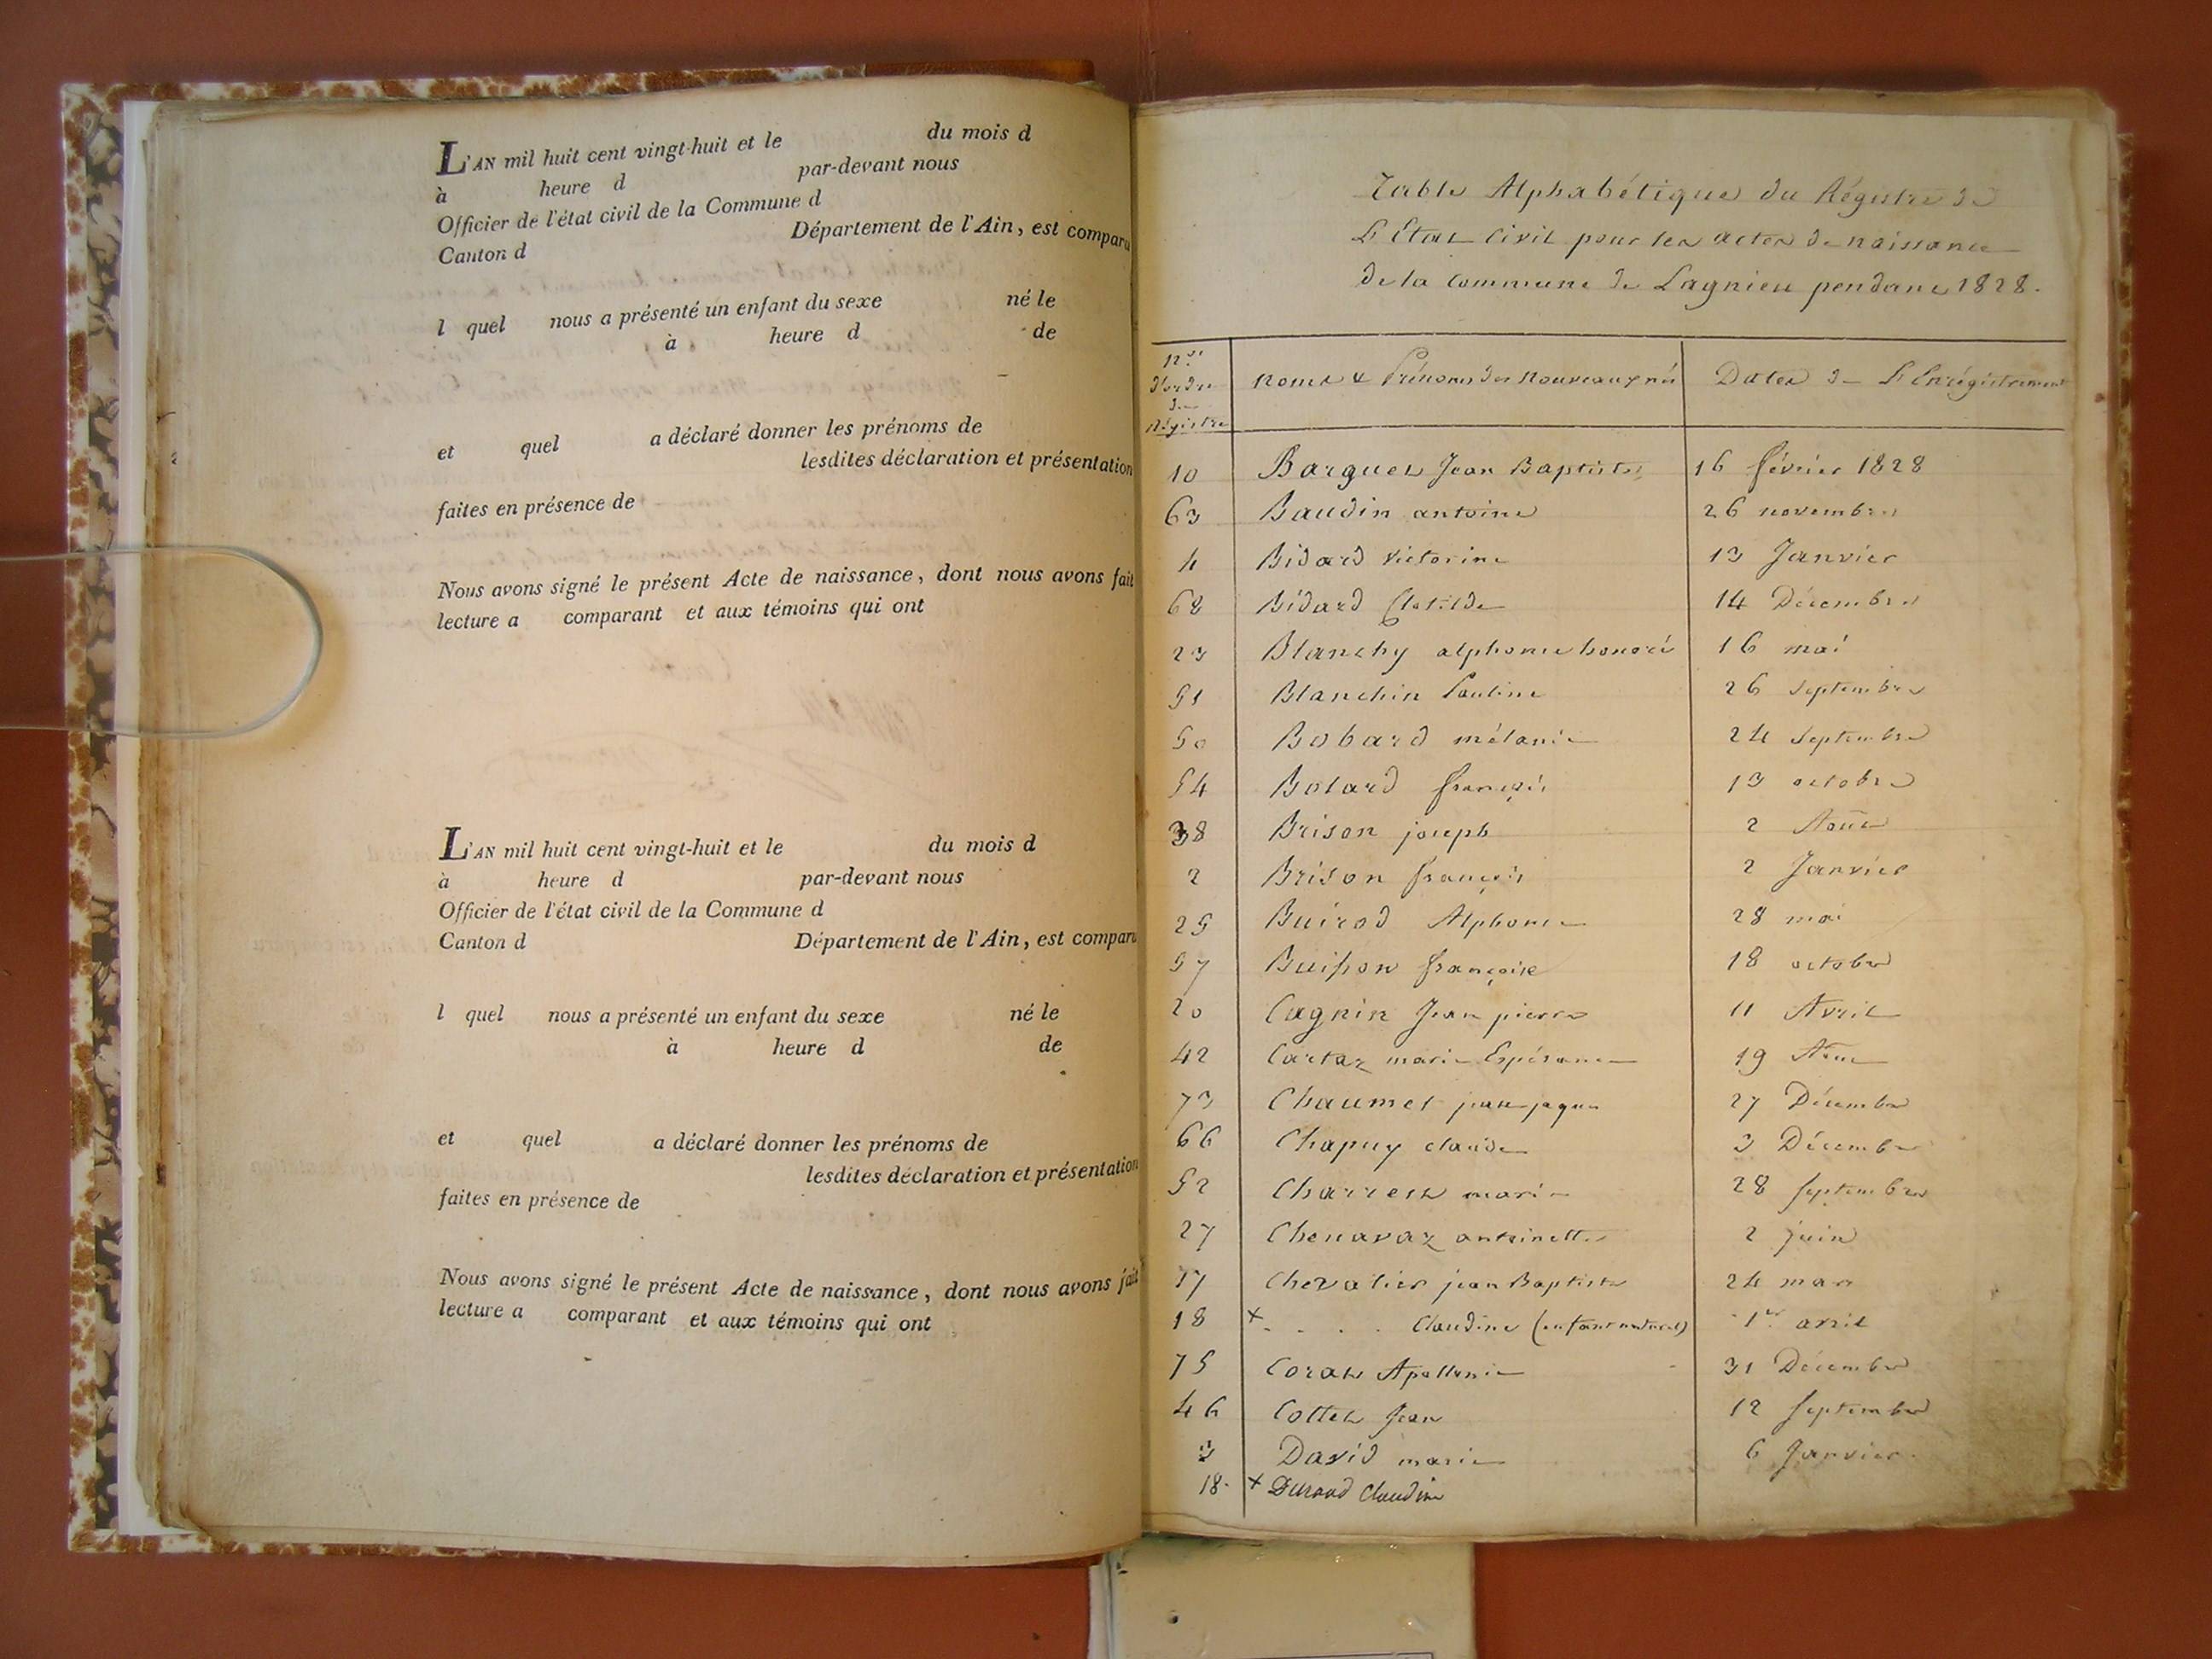 L'AN mil huit cent vingt-huit et le du mois d
à heure d par-devant nous
Officier de l'état civil de la Commune d
Canton d Département de l'Ain, est comparu
l quel nous a présenté un enfant du sexe né le
à heure d de
et quel a déclaré donner les prénoms de
lesdites déclaration et présentation
faites en présence de
Nous avons signé le présent Acte de naissance, dont nous avons fait
lecture a comparant et aux témoins qui ont
L'AN mil huit cent vingt-huit et le du mois d
à heure d par-devant nous
Officier de l'état civil de la Commune d
Canton d Département de l'Ain, est comparu
l quel nous a présenté un enfant du sexe né le
à heure d de
et quel a déclaré donner les prénoms de
lesdites déclaration et présentation
faites en présence de
Nous avons signé le présent Acte de naissance, dont nous avons fait
lecture a comparant et aux témoins qui ont
Table Alphabétique du Régistre de
L'Etat Civil pour les actes de naissance
de la commune de Lagnieu pendant 1828.
Nos d'ordre du Régistre
Noms & Prénoms des Nouveaux nés
Dates de L'Enrégistrement
10 Barguet Jean Baptiste 16 février 1828
63 Baudin antoine 26 novembre
4 Bidard victorine 13 Janvier
68 Bidard Clotilde 14 Décembre
23 Blanchy alphonse honoré 16 mai
51 Blanchin Pauline 26 septembre
50 Bobard mélanie 24 septembre
54 Bolard françois 13 octobre
38 Brison joseph 2 Aout
2 Brison françois 2 Janvier
25 Buirod Alphonse 28 mai
57 Buisson françoise 18 octobre
20 Cagnin Jean pierre 11 Avril
42 Cartaz marie Espérance 19 Aout
73 Chaumet jean jaque 27 Décembre
66 Chapuy claude 3 Décembre
52 Charret marie 28 septembre
27 Chenavaz antoinette 2 juin
17 Chevalier jean Baptiste 24 mars
18 x . . . . Claudine (enfant naturel) 1er avril
75 Corat Apollonie 31 Décembre
46 Cottet Jean 12 septembre
3 David marie 6 Janvier.
18. x Durand Claudine